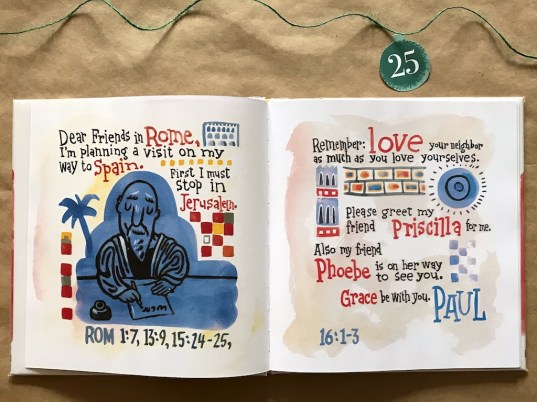 25
Dear Friends in Rome,
I'm planning a visit on my
way to Spain.
First I must
stop in
Jerusalem.
ROM 1:7, 13:9, 15:24-25,
Remember: love your neighbor
as much as you love yourselves.
Please greet my
friend Priscilla for me.
Also my friend
Phoebe is on her way
to see you.
Grace be with you. PAUL
16:1-3